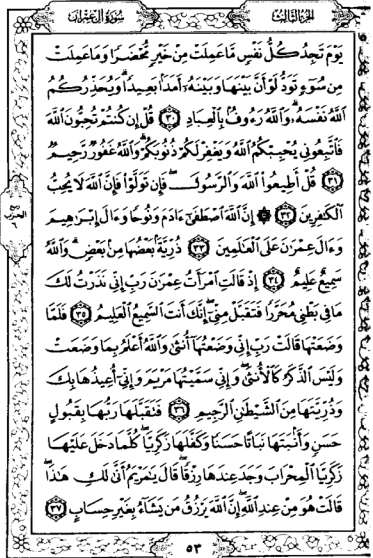 الجزء الثالث
سورة آل عمران
يَوْمَ تَجِدُ كُلُّ نَفْسٍ مَّا عَمِلَتْ مِنْ خَيْرٍ مُّحْضَرًا وَمَا عَمِلَتْ
مِن سُوٓءٍ تَوَدُّ لَوْ أَنَّ بَيْنَهَا وَبَيْنَهُۥٓ أَمَدًۢا بَعِيدًا ۗ وَيُحَذِّرُكُمُ
ٱللَّهُ نَفْسَهُۥ ۗ وَٱللَّهُ رَءُوفٌۢ بِٱلْعِبَادِ ٣٠ قُلْ إِن كُنتُمْ تُحِبُّونَ ٱللَّهَ
فَٱتَّبِعُونِى يُحْبِبْكُمُ ٱللَّهُ وَيَغْفِرْ لَكُمْ ذُنُوبَكُمْ ۗ وَٱللَّهُ غَفُورٌ رَّحِيمٌ
٣١ قُلْ أَطِيعُوا۟ ٱللَّهَ وَٱلرَّسُولَ ۖ فَإِن تَوَلَّوْا۟ فَإِنَّ ٱللَّهَ لَا يُحِبُّ
ٱلْكَٰفِرِينَ ٣٢ ۞ إِنَّ ٱللَّهَ ٱصْطَفَىٰٓ ءَادَمَ وَنُوحًا وَءَالَ إِبْرَٰهِيمَ
وَءَالَ عِمْرَٰنَ عَلَى ٱلْعَٰلَمِينَ ٣٣ ذُرِّيَّةًۢ بَعْضُهَا مِنۢ بَعْضٍ ۗ وَٱللَّهُ
سَمِيعٌ عَلِيمٌ ٣٤ إِذْ قَالَتِ ٱمْرَأَتُ عِمْرَٰنَ رَبِّ إِنِّى نَذَرْتُ لَكَ
مَا فِى بَطْنِى مُحَرَّرًا فَتَقَبَّلْ مِنِّىٓ ۖ إِنَّكَ أَنتَ ٱلسَّمِيعُ ٱلْعَلِيمُ ٣٥ فَلَمَّا
وَضَعَتْهَا قَالَتْ رَبِّ إِنِّى وَضَعْتُهَآ أُنثَىٰ وَٱللَّهُ أَعْلَمُ بِمَا وَضَعَتْ
وَلَيْسَ ٱلذَّكَرُ كَٱلْأُنثَىٰ ۖ وَإِنِّى سَمَّيْتُهَا مَرْيَمَ وَإِنِّىٓ أُعِيذُهَا بِكَ
وَذُرِّيَّتَهَا مِنَ ٱلشَّيْطَٰنِ ٱلرَّجِيمِ ٣٦ فَتَقَبَّلَهَا رَبُّهَا بِقَبُولٍ
حَسَنٍ وَأَنۢبَتَهَا نَبَاتًا حَسَنًا وَكَفَّلَهَا زَكَرِيَّا ۖ كُلَّمَا دَخَلَ عَلَيْهَا
زَكَرِيَّا ٱلْمِحْرَابَ وَجَدَ عِندَهَا رِزْقًا ۖ قَالَ يَٰمَرْيَمُ أَنَّىٰ لَكِ هَٰذَا ۖ
قَالَتْ هُوَ مِنْ عِندِ ٱللَّهِ ۖ إِنَّ ٱللَّهَ يَرْزُقُ مَن يَشَآءُ بِغَيْرِ حِسَابٍ ٣٧
٥٣